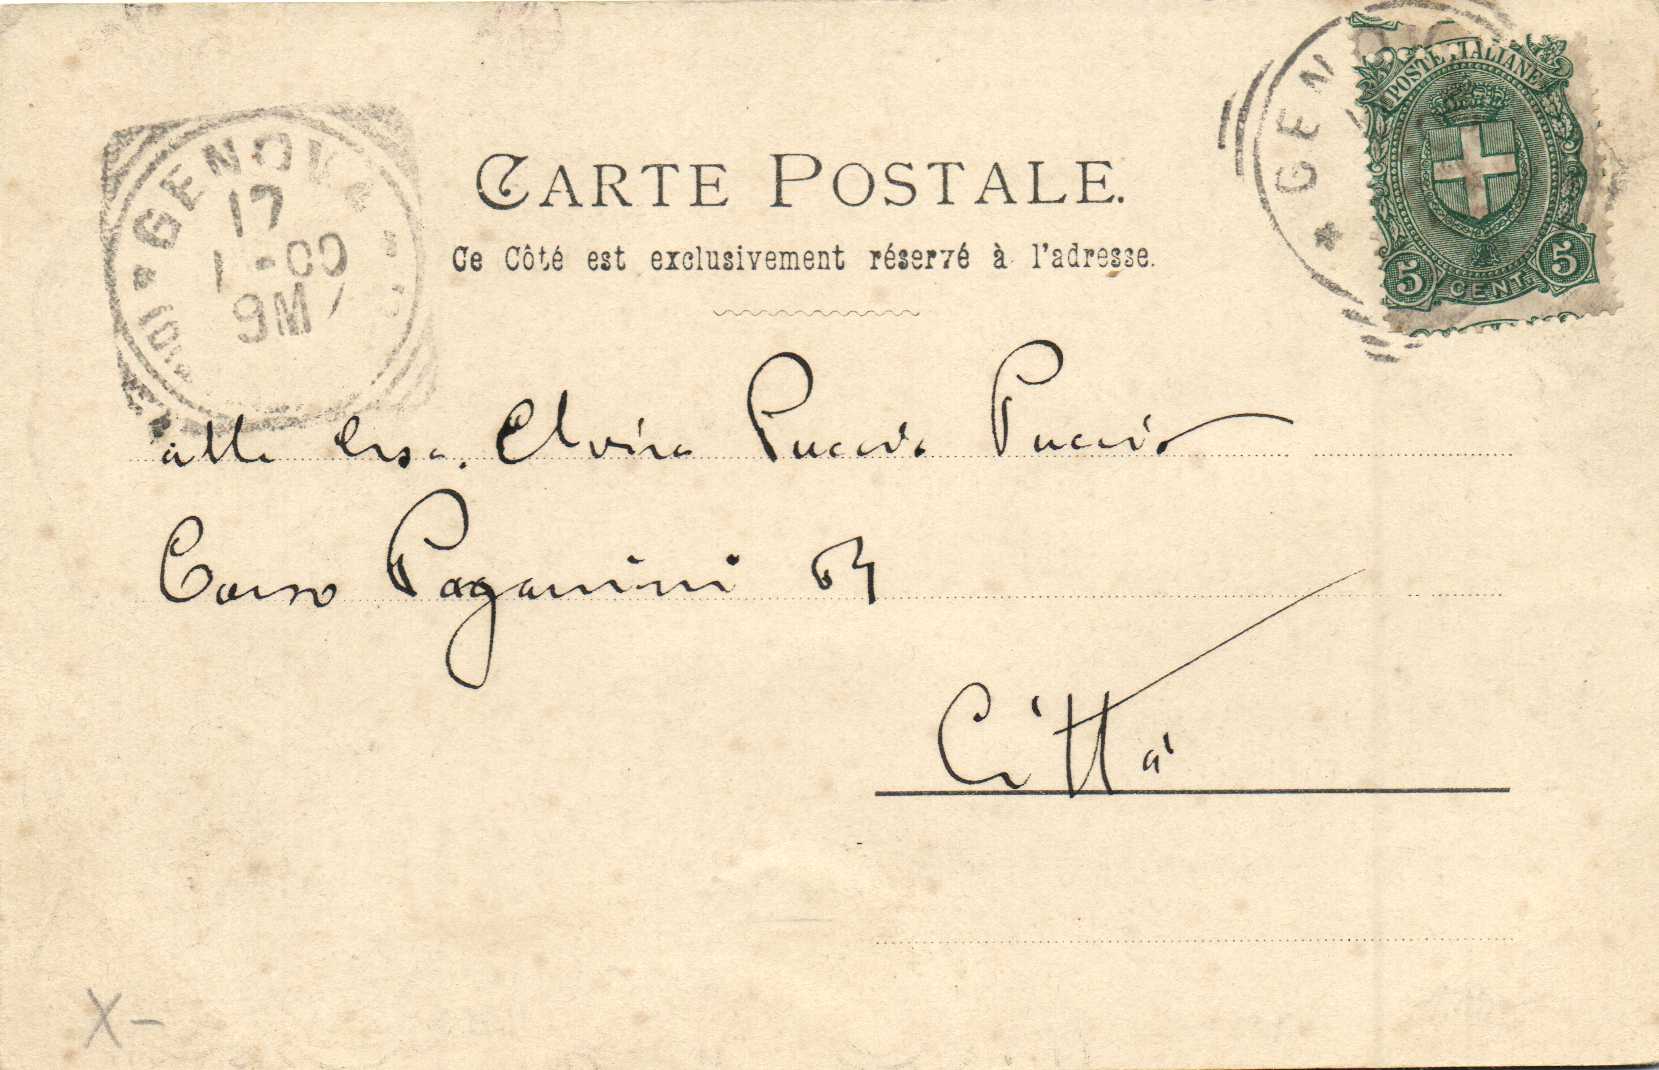 GENOVA
17
1-00
9M
CARTE POSTALE.
Ce Côté est exclusivement réservé à l'adresse.
GENOV
POSTE ITALIANE
5 CENT. 5
alla Elvira
Corso Paganini
Città
X-